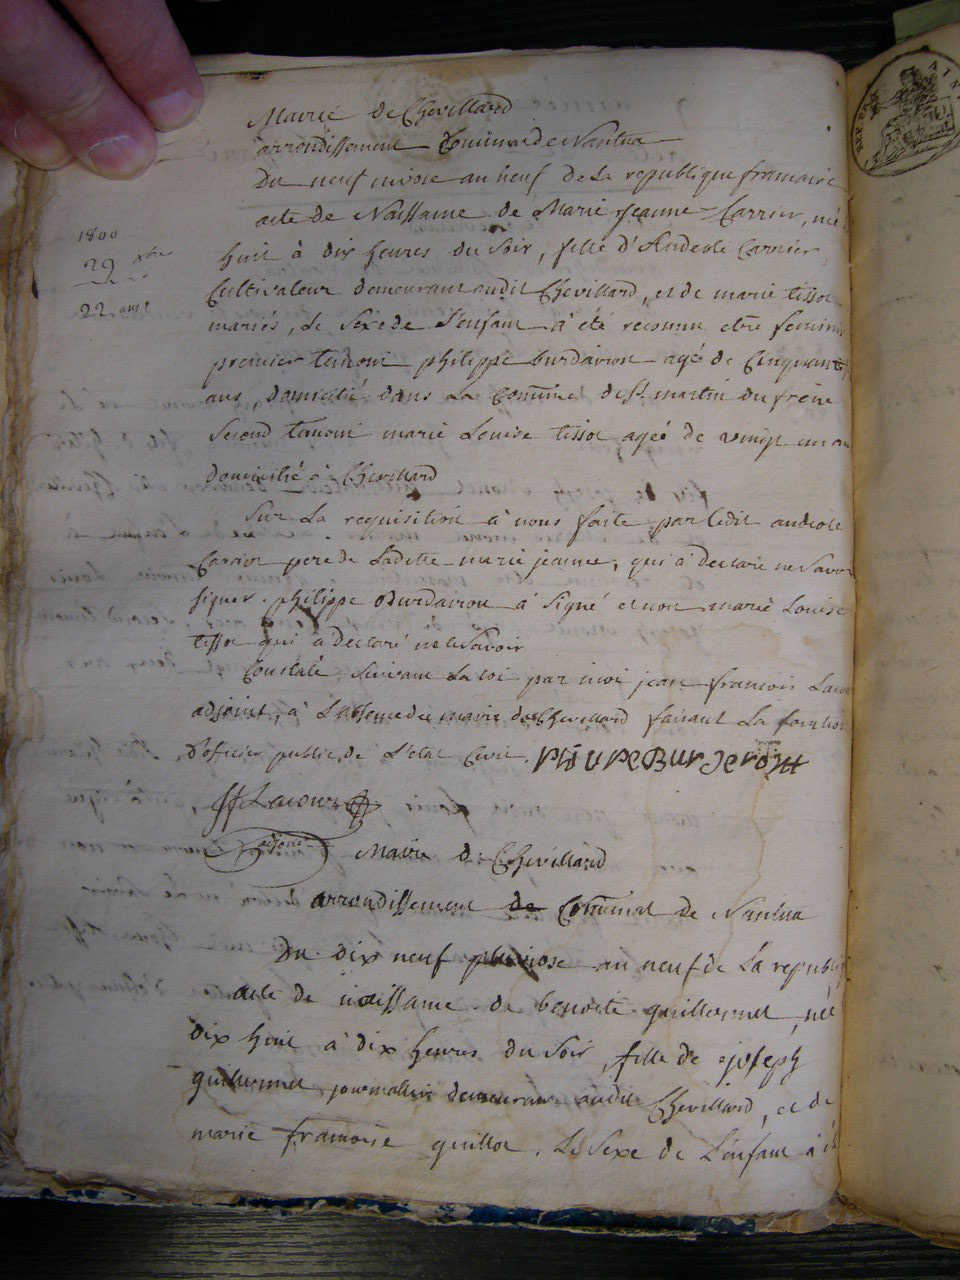 Mairie de Chevillard
arrondissement Communal de Nantua
Du neuf nivose an neuf de La republique francaise
acte de Naissance de Marie Jeanne Carrier, née le
huit à dix heures du Soir, fille d'Andeole Carrier
Cultivateur demeurant audit Chevillard, et de marie tissot
mariés, Le Sexe de L'enfant a été reconnu etre feminin
premier temoin philippe burdairon agé de Cinquante
ans, domicilié dans La Commune de St martin du frene
Second temoin marie Louise tissot ageé de vingt un an
domicilié à Chevillard
Sur La requisition à nous faite par ledit andeole
Carrier pere de Laditte marie jeanne, qui à declaré ne Savoir
signer. philippe Burdairon à Signé et non marie Louise
tissot qui a declaré ne le Savoir
Constaté Suivant La loi par moi jean francois Lacour
adjoint, à L'absence du maire de Chevillard faisant La fonction
d'officier public de L'etat Civil.
1800
29 xbre
22 ans
JfLacour
adjoint
Mairie de Chevillard
arrondissement de Communal de Nantua
Du dix neuf pluviose an neuf de La republi
acte de naissance de benoite guillermet, née
dix huit à dix heures du Soir, fille de joseph
guillermet journallier demeurant audit Chevillard, et de
marie francoise guillot, Le Sexe de L'enfant à été